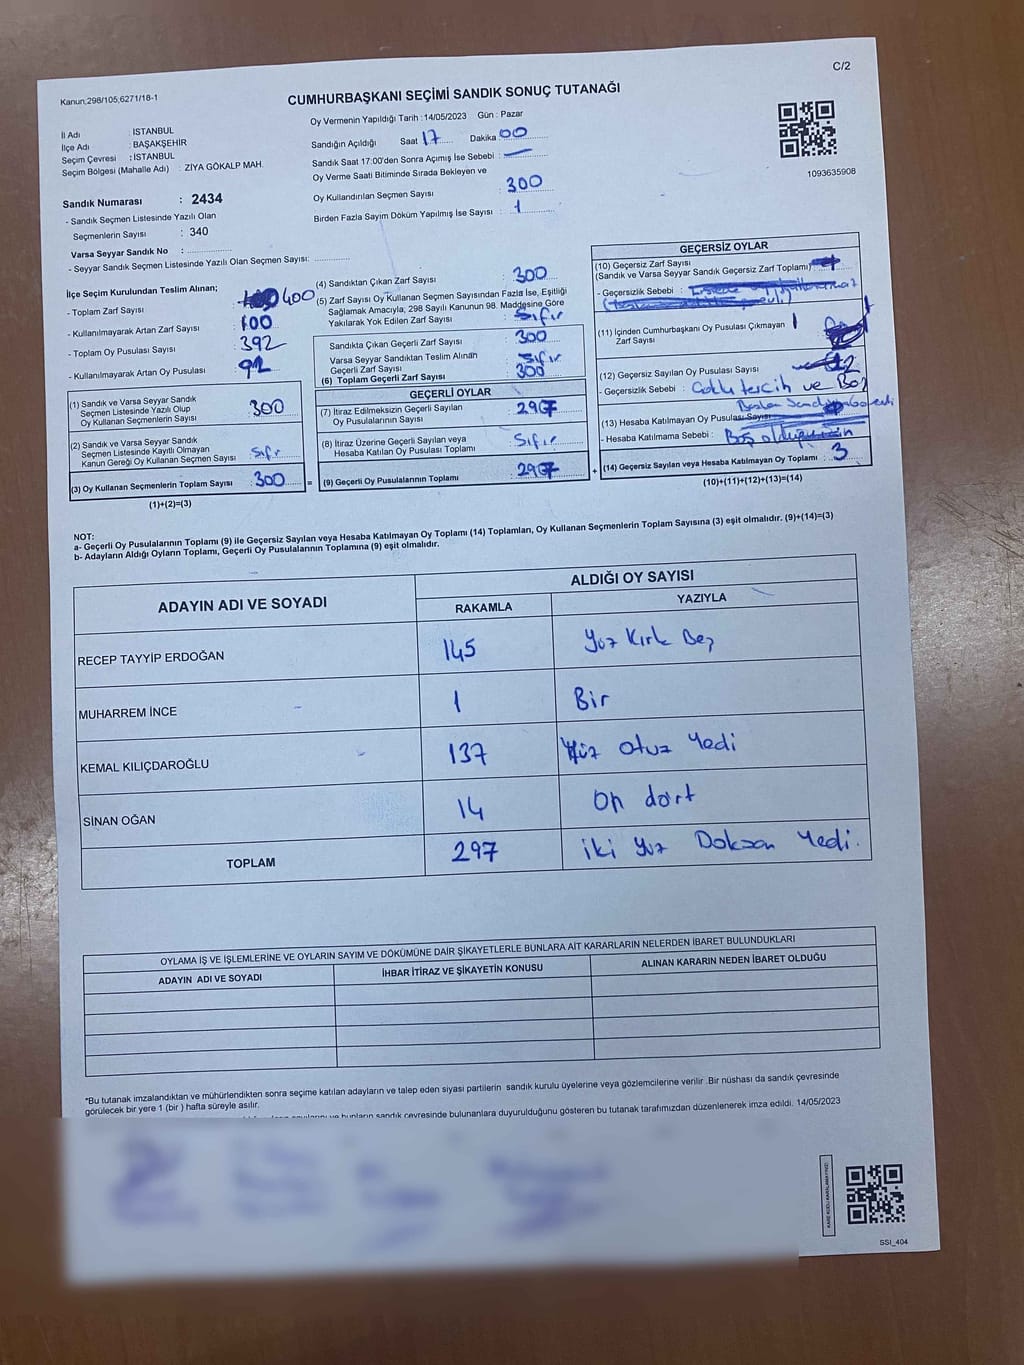 C/2
Kanun;298/105;6271/18-1
CUMHURBAŞKANI SEÇİMİ SANDIK SONUÇ TUTANAĞI
Oy Vermenin Yapıldığı Tarih :14/05/2023 Gün : Pazar
İl Adı : İSTANBUL
İlçe Adı : BAŞAKŞEHİR
Seçim Çevresi : İSTANBUL
Seçim Bölgesi (Mahalle Adı) : ZİYA GÖKALP MAH.
Sandığın Açıldığı Saat 17 Dakika 00
Sandık Saat 17:00'den Sonra Açımış İse Sebebi : —
Oy Verme Saati Bitiminde Sırada Bekleyen ve
Oy Kullandırılan Seçmen Sayısı : 300
Birden Fazla Sayım Döküm Yapılmış İse Sayısı : 1
1093635908
Sandık Numarası : 2434
- Sandık Seçmen Listesinde Yazılı Olan
Seçmenlerin Sayısı : 340
Varsa Seyyar Sandık No :
- Seyyar Sandık Seçmen Listesinde Yazılı Olan Seçmen Sayısı:
İlçe Seçim Kurulundan Teslim Alınan;
- Toplam Zarf Sayısı : 400
- Kullanılmayarak Artan Zarf Sayısı : 100
- Toplam Oy Pusulası Sayısı : 392
- Kullanılmayarak Artan Oy Pusulası : 92
(1) Sandık ve Varsa Seyyar Sandık
Seçmen Listesinde Yazılı Olup
Oy Kullanan Seçmenlerin Sayısı : 300
(2) Sandık ve Varsa Seyyar Sandık
Seçmen Listesinde Kayıtlı Olmayan
Kanun Gereği Oy Kullanan Seçmen Sayısı : Sıfır
(3) Oy Kullanan Seçmenlerin Toplam Sayısı : 300 =
(1)+(2)=(3)
(4) Sandıktan Çıkan Zarf Sayısı : 300
(5) Zarf Sayısı Oy Kullanan Seçmen Sayısından Fazla İse, Eşitliği
Sağlamak Amacıyla, 298 Sayılı Kanunun 98. Maddesine Göre
Yakılarak Yok Edilen Zarf Sayısı : Sıfır
Sandıkta Çıkan Geçerli Zarf Sayısı : 300
Varsa Seyyar Sandıktan Teslim Alınan
Geçerli Zarf Sayısı : Sıfır
(6) Toplam Geçerli Zarf Sayısı : 300
GEÇERLİ OYLAR
(7) İtiraz Edilmeksizin Geçerli Sayılan
Oy Pusulalarının Sayısı : 297
(8) İtiraz Üzerine Geçerli Sayılan veya
Hesaba Katılan Oy Pusulası Toplamı : Sıfır
(9) Geçerli Oy Pusulalarının Toplamı : 297 +
GEÇERSİZ OYLAR
(10) Geçersiz Zarf Sayısı
(Sandık ve Varsa Seyyar Sandık Geçersiz Zarf Toplamı) :
- Geçersizlik Sebebi :
(11) İçinden Cumhurbaşkanı Oy Pusulası Çıkmayan 1
Zarf Sayısı
(12) Geçersiz Sayılan Oy Pusulası Sayısı : 2
- Geçersizlik Sebebi : Çoklu tercih ve Boş
(13) Hesaba Katılmayan Oy Pusulası Sayısı
- Hesaba Katılmama Sebebi : Boş
(14) Geçersiz Sayılan veya Hesaba Katılmayan Oy Toplamı : 3
(10)+(11)+(12)+(13)=(14)
NOT:
a- Geçerli Oy Pusulalarının Toplamı (9) ile Geçersiz Sayılan veya Hesaba Katılmayan Oy Toplamı (14) Toplamları, Oy Kullanan Seçmenlerin Toplam Sayısına (3) eşit olmalıdır. (9)+(14)=(3)
b- Adayların Aldığı Oyların Toplamı, Geçerli Oy Pusulalarının Toplamına (9) eşit olmalıdır.
ADAYIN ADI VE SOYADI
ALDIĞI OY SAYISI
RAKAMLA YAZIYLA
RECEP TAYYİP ERDOĞAN 145 Yüz Kırk Beş
MUHARREM İNCE 1 Bir
KEMAL KILIÇDAROĞLU 137 Yüz otuz Yedi
SİNAN OĞAN 14 On dört
TOPLAM 297 iki Yüz Doksan Yedi.
OYLAMA İŞ VE İŞLEMLERİNE VE OYLARIN SAYIM VE DÖKÜMÜNE DAİR ŞİKAYETLERLE BUNLARA AİT KARARLARIN NELERDEN İBARET BULUNDUKLARI
ADAYIN ADI VE SOYADI İHBAR İTİRAZ VE ŞİKAYETİN KONUSU ALINAN KARARIN NEDEN İBARET OLDUĞU
*Bu tutanak imzalandıktan ve mühürlendikten sonra seçime katılan adayların ve talep eden siyasi partilerin sandık kurulu üyelerine veya gözlemcilerine verilir .Bir nüshası da sandık çevresinde
görülecek bir yere 1 (bir ) hafta süreyle asılır.
ve bunların sandık çevresinde bulunanlara duyurulduğunu gösteren bu tutanak tarafımızdan düzenlenerek imza edildi. 14/05/2023
SSI_404